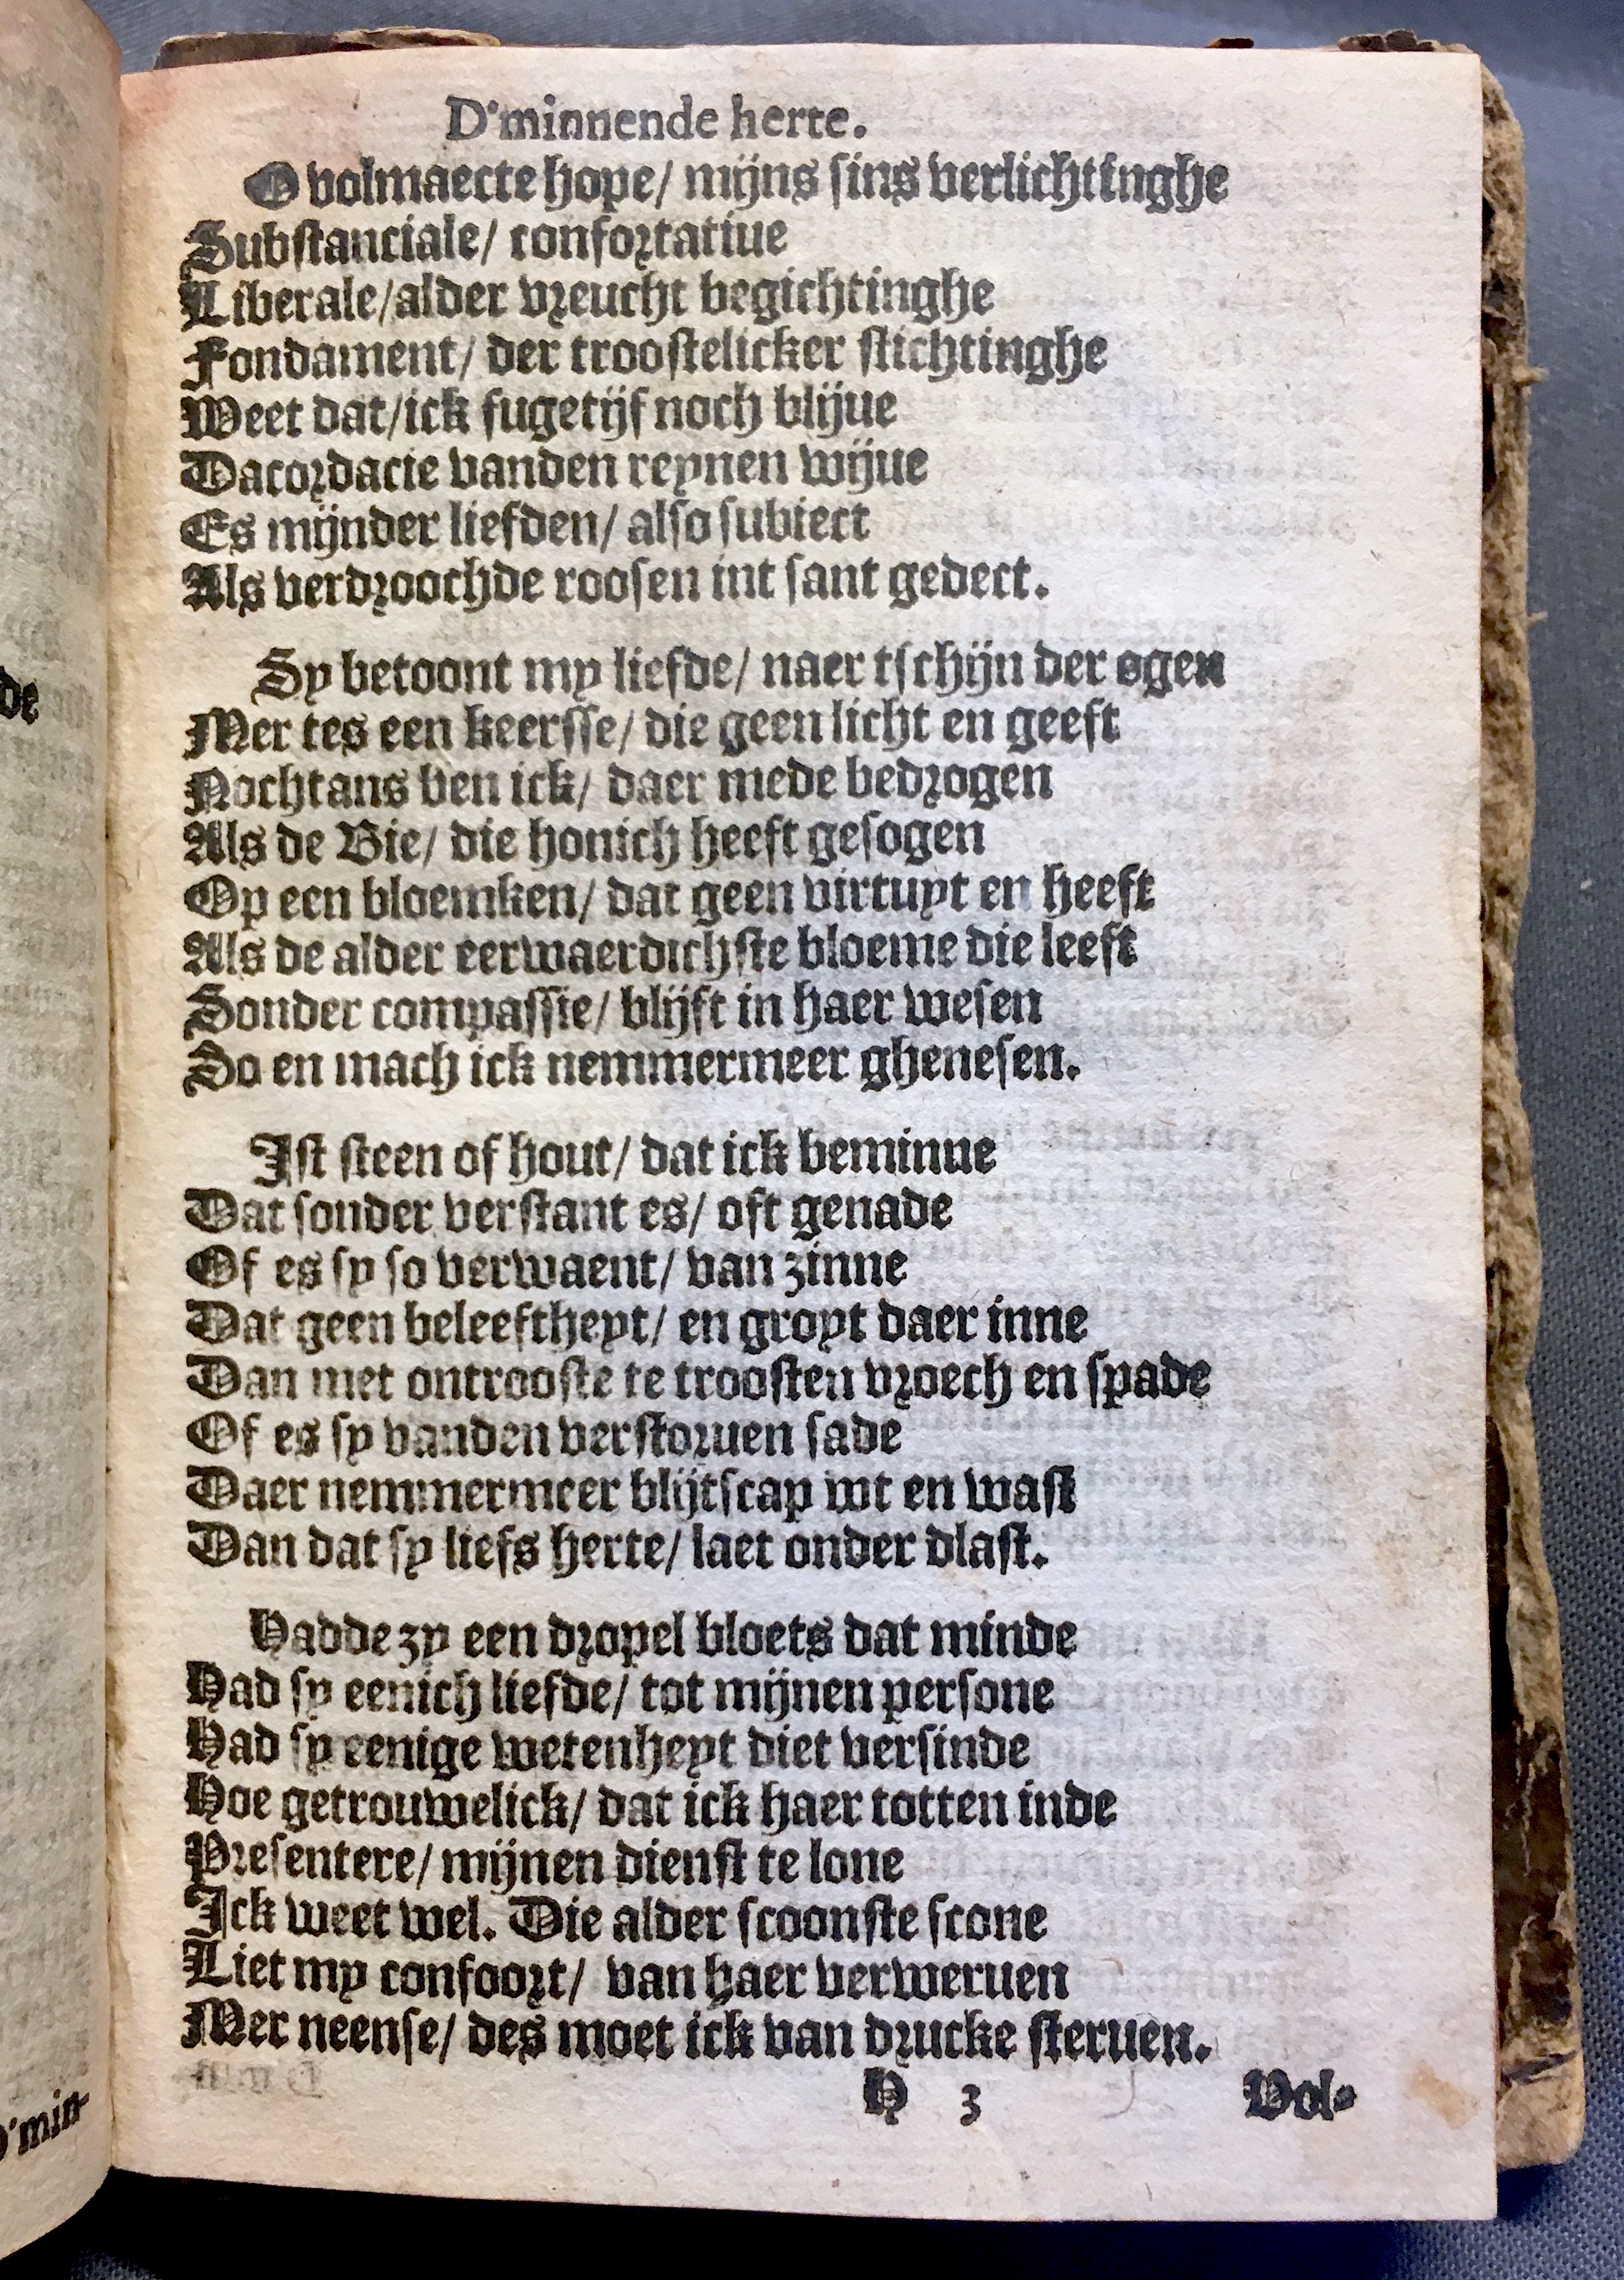 D'minnende herte.
O volmaecte hope/ mijns sins verlichtinghe
Substanciale/ confortatiue
Liberale/alder vreucht begichtinghe
Fondament/ der troostelicker stichtinghe
Weet dat/ick fugetijf noch blijue
Dacordacie vanden reynen wijue
Es mijnder liefden/ also subiect
Als verdroochde roosen int sant gedect.
Sy betoont my liefde/ naer tschijn der ogen
Mer tes een keersse/ die geen licht en geeft
Nochtans ben ick/ daer mede bedrogen
Als de Bie/ die honich heeft gesogen
Op een bloemken/ dat geen virtuyt en heeft
Als de alder eerwaerdichste bloeme die leeft
Sonder compassie/ blijft in haer wesen
So en mach ick nemmermeer ghenesen.
Ist steen of hout/ dat ick beminne
Dat sonder verstant es/ oft genade
Of es sy so verwaent/ van zinne
Dat geen beleeftheyt/ en groyt daer inne
Dan met ontrooste te troosten vroech en spade
Of es sy vanden verstoruen sade
Daer nemmermeer blijtscap wt en wast
Dan dat sy liefs herte/ laet onder dlast.
Hadde zy een dropel bloets dat minde
Had sy eenich liefde/ tot mijnen persone
Had sy eenige wetenheyt diet versinde
Hoe getrouwelick/ dat ick haer totten inde
Presentere/ mijnen dienst te lone
Ick weet wel. Die alder scoonste scone
Liet my confoort/ van haer verweruen
Mer neense/ des moet ick van drucke steruen.
H 3 Vol-
de
D'min-